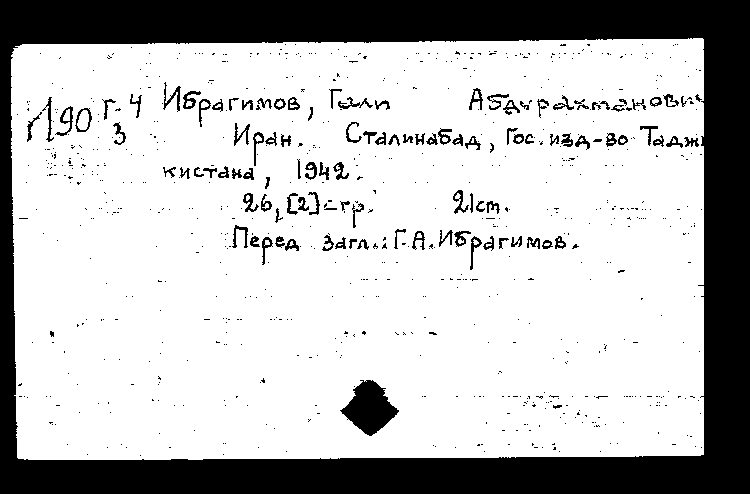 И90 г-4
3
Ибрагимов, Гали Абдурахманович
Иран. Сталинабад, Гос. изд-во Таджи
кистана, 1942.
26, [2] стр. 21 cm.
Перед загл.: Г.А. Ибрагимов.